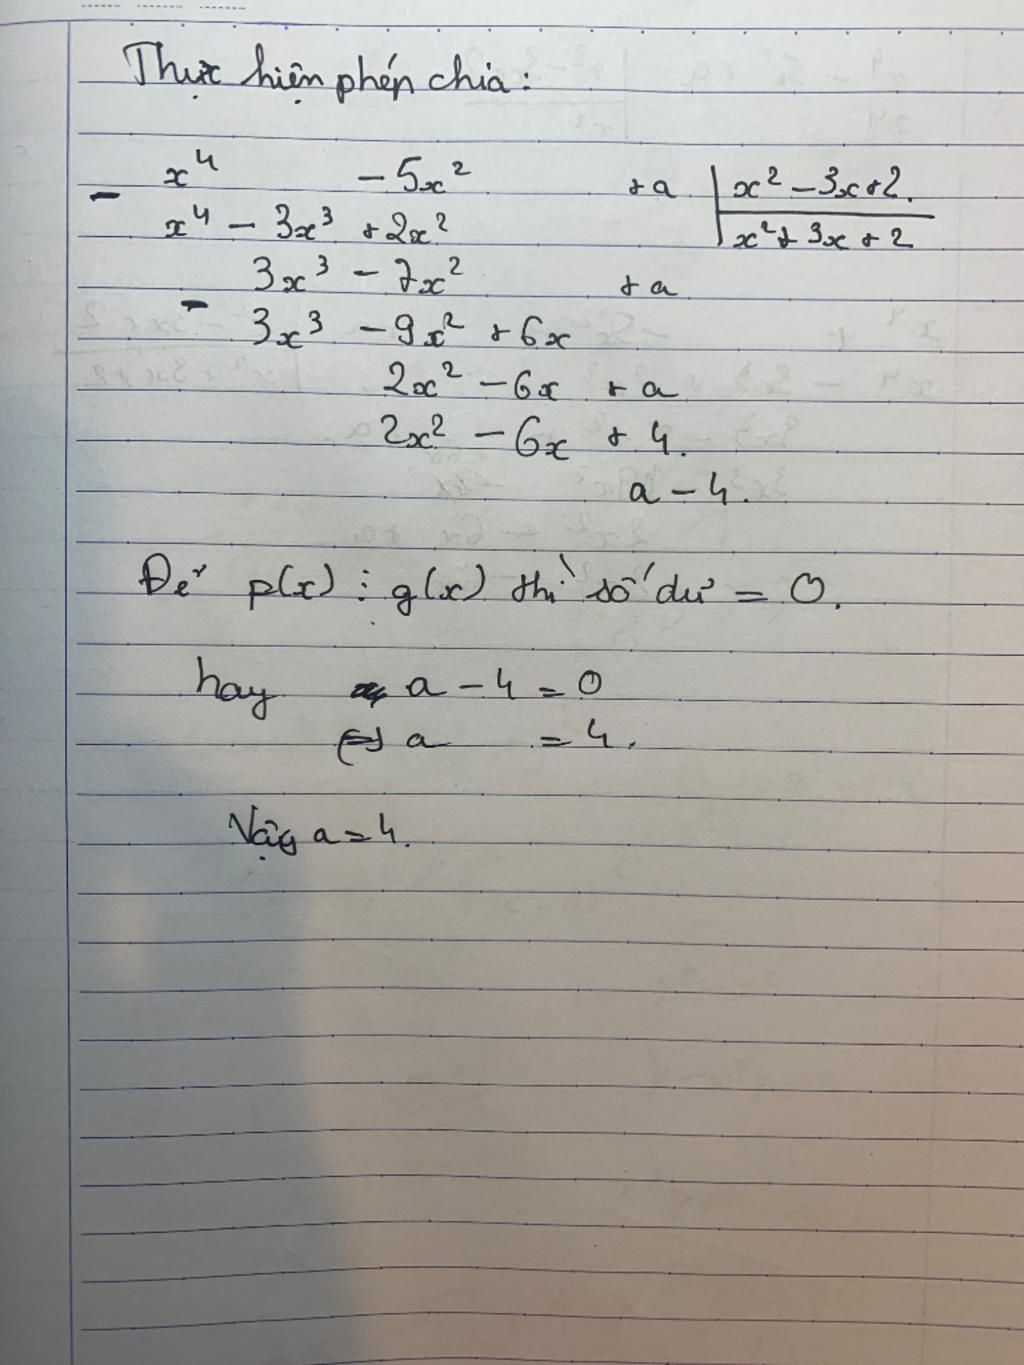 Thực hiện phép chia:
x⁴ - 5x² + a | x² - 3x + 2.
- x⁴ - 3x³ + 2x² | x² + 3x + 2
3x³ - 7x² + a
- 3x³ - 9x² + 6x
2x² - 6x + a
2x² - 6x + 4.
a - 4.
Để p(x) ⋮ g(x) thì số dư = 0.
hay a - 4 = 0
⇔ a = 4.
Vậy a = 4.